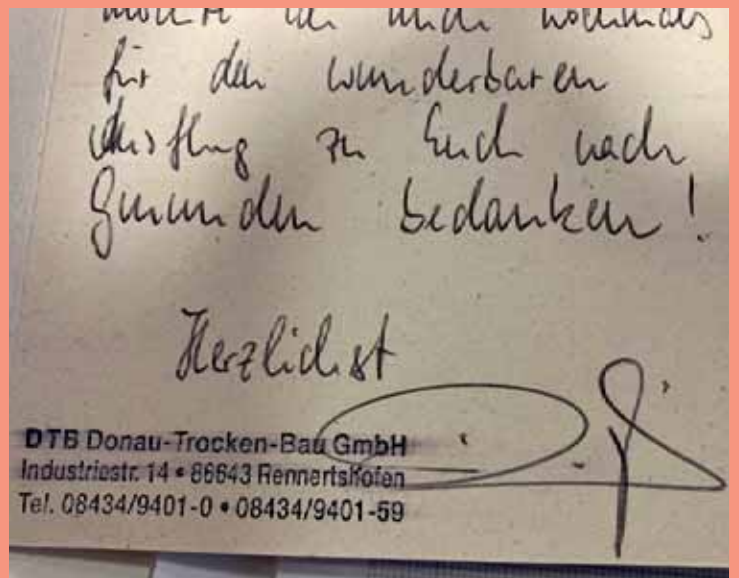 möchte ich mich nochmals
für den wunderbaren
Ausflug zu Euch nach
Gmunden bedanken!
Herzlichst
DTB Donau-Trocken-Bau GmbH
Industriestr. 14 • 86643 Rennertshofen
Tel. 08434/9401-0 • 08434/9401-59